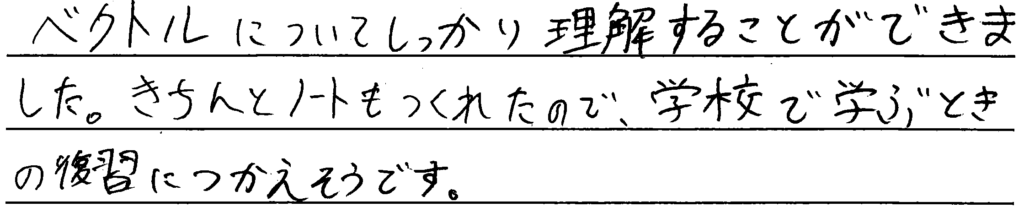 ベクトルについてしっかり理解することができま
した。きちんとノートもつくれたので、学校で学ぶとき
の復習につかえそうです。